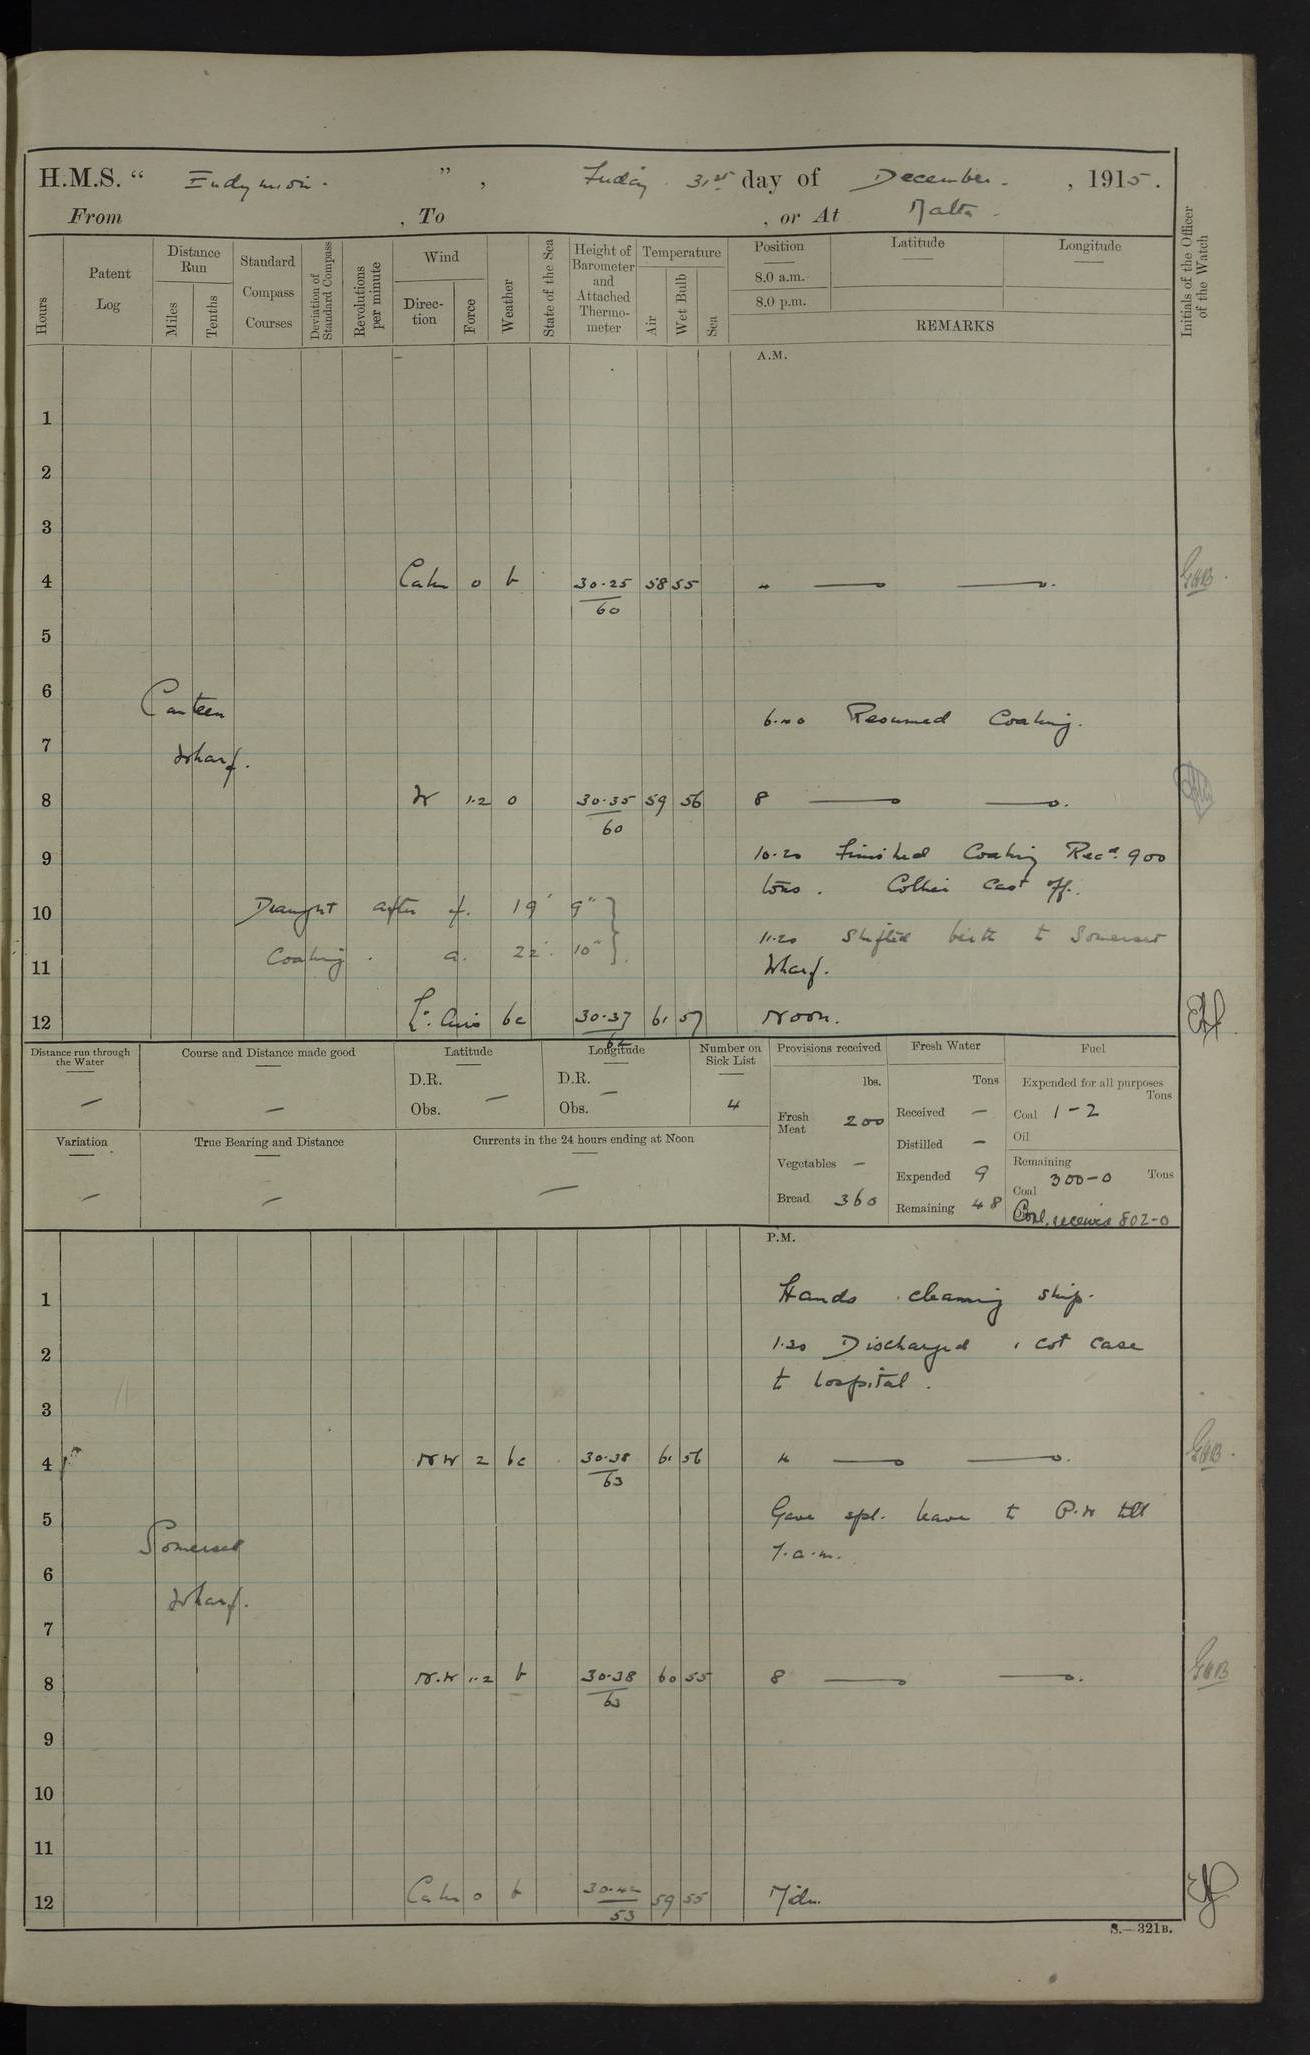 H.M.S. “ Endymion. ” , Friday 31st day of December. , 1915.
From , To , or At Malta.
Hours
Patent Log
Distance Run
Miles
Tenths
Standard Compass Courses
Deviation of Standard Compass
Revolutions per minute
Wind
Direc-tion
Force
Weather
State of the Sea
Height of Barometer and Attached Thermo-meter
Temperature
Air
Wet Bulb
Sea
Position
8.0 a.m.
8.0 p.m.
Latitude
Longitude
REMARKS
Initials of the Officer of the Watch
A.M.
1
2
3
4 Calm 0 b 30.25 58 55 4
60
GHB
5
6
Canteen
6.40 Resumed Coaling.
7
Wharf.
8 W 1.2 0 30.35 59 56 8
60
9
10.20 Finished Coaling Recd. 900
tons. Collier cast off.
10 Draught after f. 19' 9"
11.20 Shifted berth to Somerset
11 Coaling. a. 22' 10"
Wharf.
12 Lt. Airs bc 30.37 61 57 Noon.
62
Distance run through the Water
—
Course and Distance made good
—
Latitude
D.R.
Obs. —
Longitude
D.R.
Obs. —
Number on Sick List
4
Provisions received
lbs.
Fresh Meat 200
Vegetables —
Bread 360
Fresh Water
Tons
Received —
Distilled —
Expended 9
Remaining 48
Fuel
Expended for all purposes
Tons
Coal 1-2
Oil
Remaining
Coal 300-0 Tons
Coal received 802-0
Variation
—
True Bearing and Distance
—
Currents in the 24 hours ending at Noon
—
P.M.
1 Hands cleaning ship.
2 1.20 Discharged 1 cot case
to hospital.
3
4 NW 2 bc 30.38 61 56 4
63
GHB
5 Gave spl. leave to P.W till
7.a.m.
Somerset
6
Wharf.
7
8 N.W 1.2 b 30.38 60 55 8
63
GHB
9
10
11
12 Calm 0 b 30.42 59 55 Midn.
53
S.—321B.